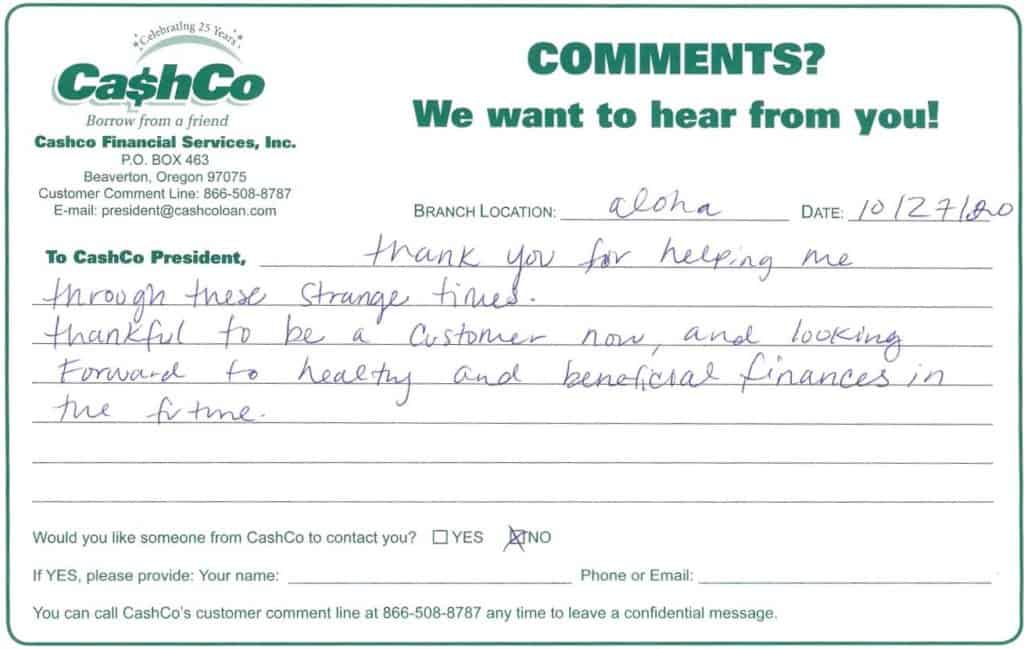 Celebrating 25 Years
Ca$hCo
Borrow from a friend
Cashco Financial Services, Inc.
P.O. BOX 463
Beaverton, Oregon 97075
Customer Comment Line: 866-508-8787
E-mail: president@cashcoloan.com
COMMENTS?
We want to hear from you!
BRANCH LOCATION: aloha DATE: 10/27/20
To CashCo President, thank you for helping me
through these strange times.
thankful to be a customer now, and looking
Forward to healthy and beneficial finances in
the future.
Would you like someone from CashCo to contact you? ☐ YES ☒ NO
If YES, please provide: Your name: Phone or Email:
You can call CashCo's customer comment line at 866-508-8787 any time to leave a confidential message.